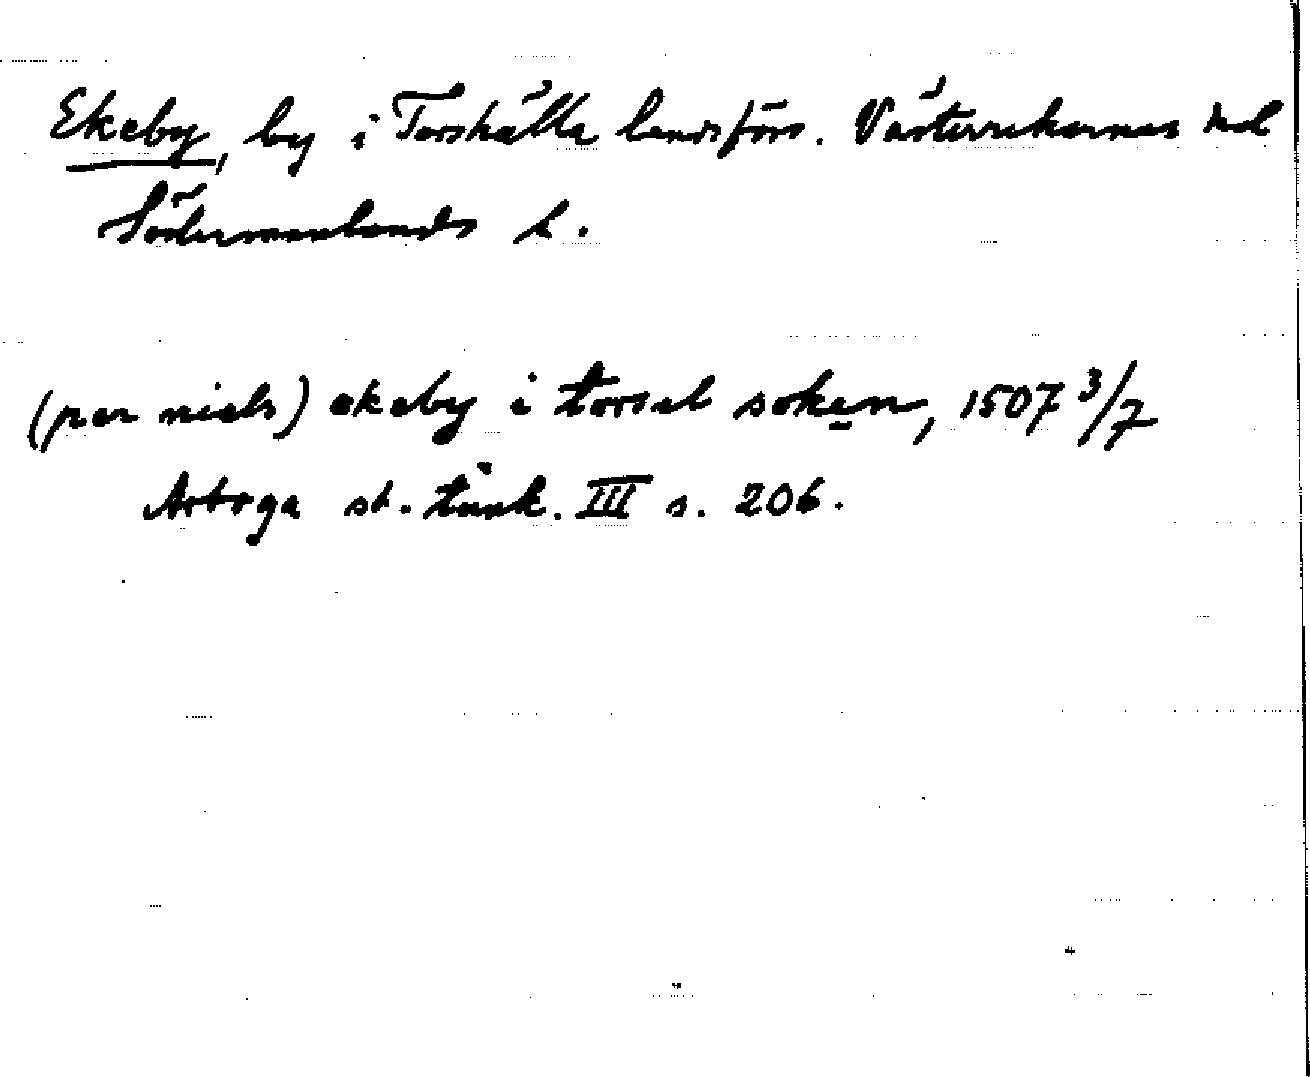 Ekeby, by i Torshälla landsförs. Västerrekarnes hd
Södermanlands l.
(per niels) ekeby i torsal soken, 1507 3/7
Arboga st. tänk. III s. 206.